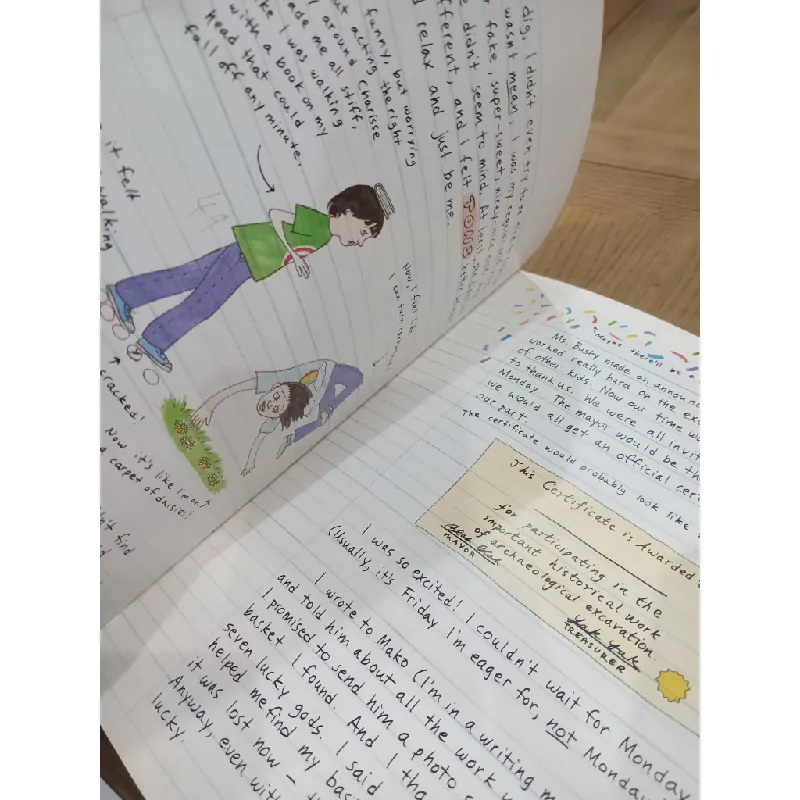 dig, I didn't even try to be
wasn't mean, I was my
fake, super-sweet, nicey-nice
didn't seem to mind. At least she
fferent, and I felt TONS
relax and just be me.
funny, but worrying
t acting the right
around Charisse
ade me all stiff,
ke I was walking
with a book on my
head that could
fall off any minute.
it felt
walking
cracked!
Now, I feel like
I can turn
Now it's like I'm on
a carpet of daisies!
find
Ms. Busby made an announce
worked really hard on the ex
of other kids. Now our time w
to thank us. We were all invit
Monday. The mayor would be the
we would all get an official cer
our part.
The certificate would probably look like
This Certificate is Awarded
for participating in the
important historical work
of archaeological excavation.
MAYOR
TREASURER
I was so excited! I couldn't wait for Monday
(Usually, it's Friday I'm eager for, not Monda
I wrote to Mako (I'm in a writing m
and told him about all the work w
I promised to send him a photo
basket I found. And I tho
seven lucky gods. I said
helped me find my bas
it was lost now - th
Anyway, even with
lucky.